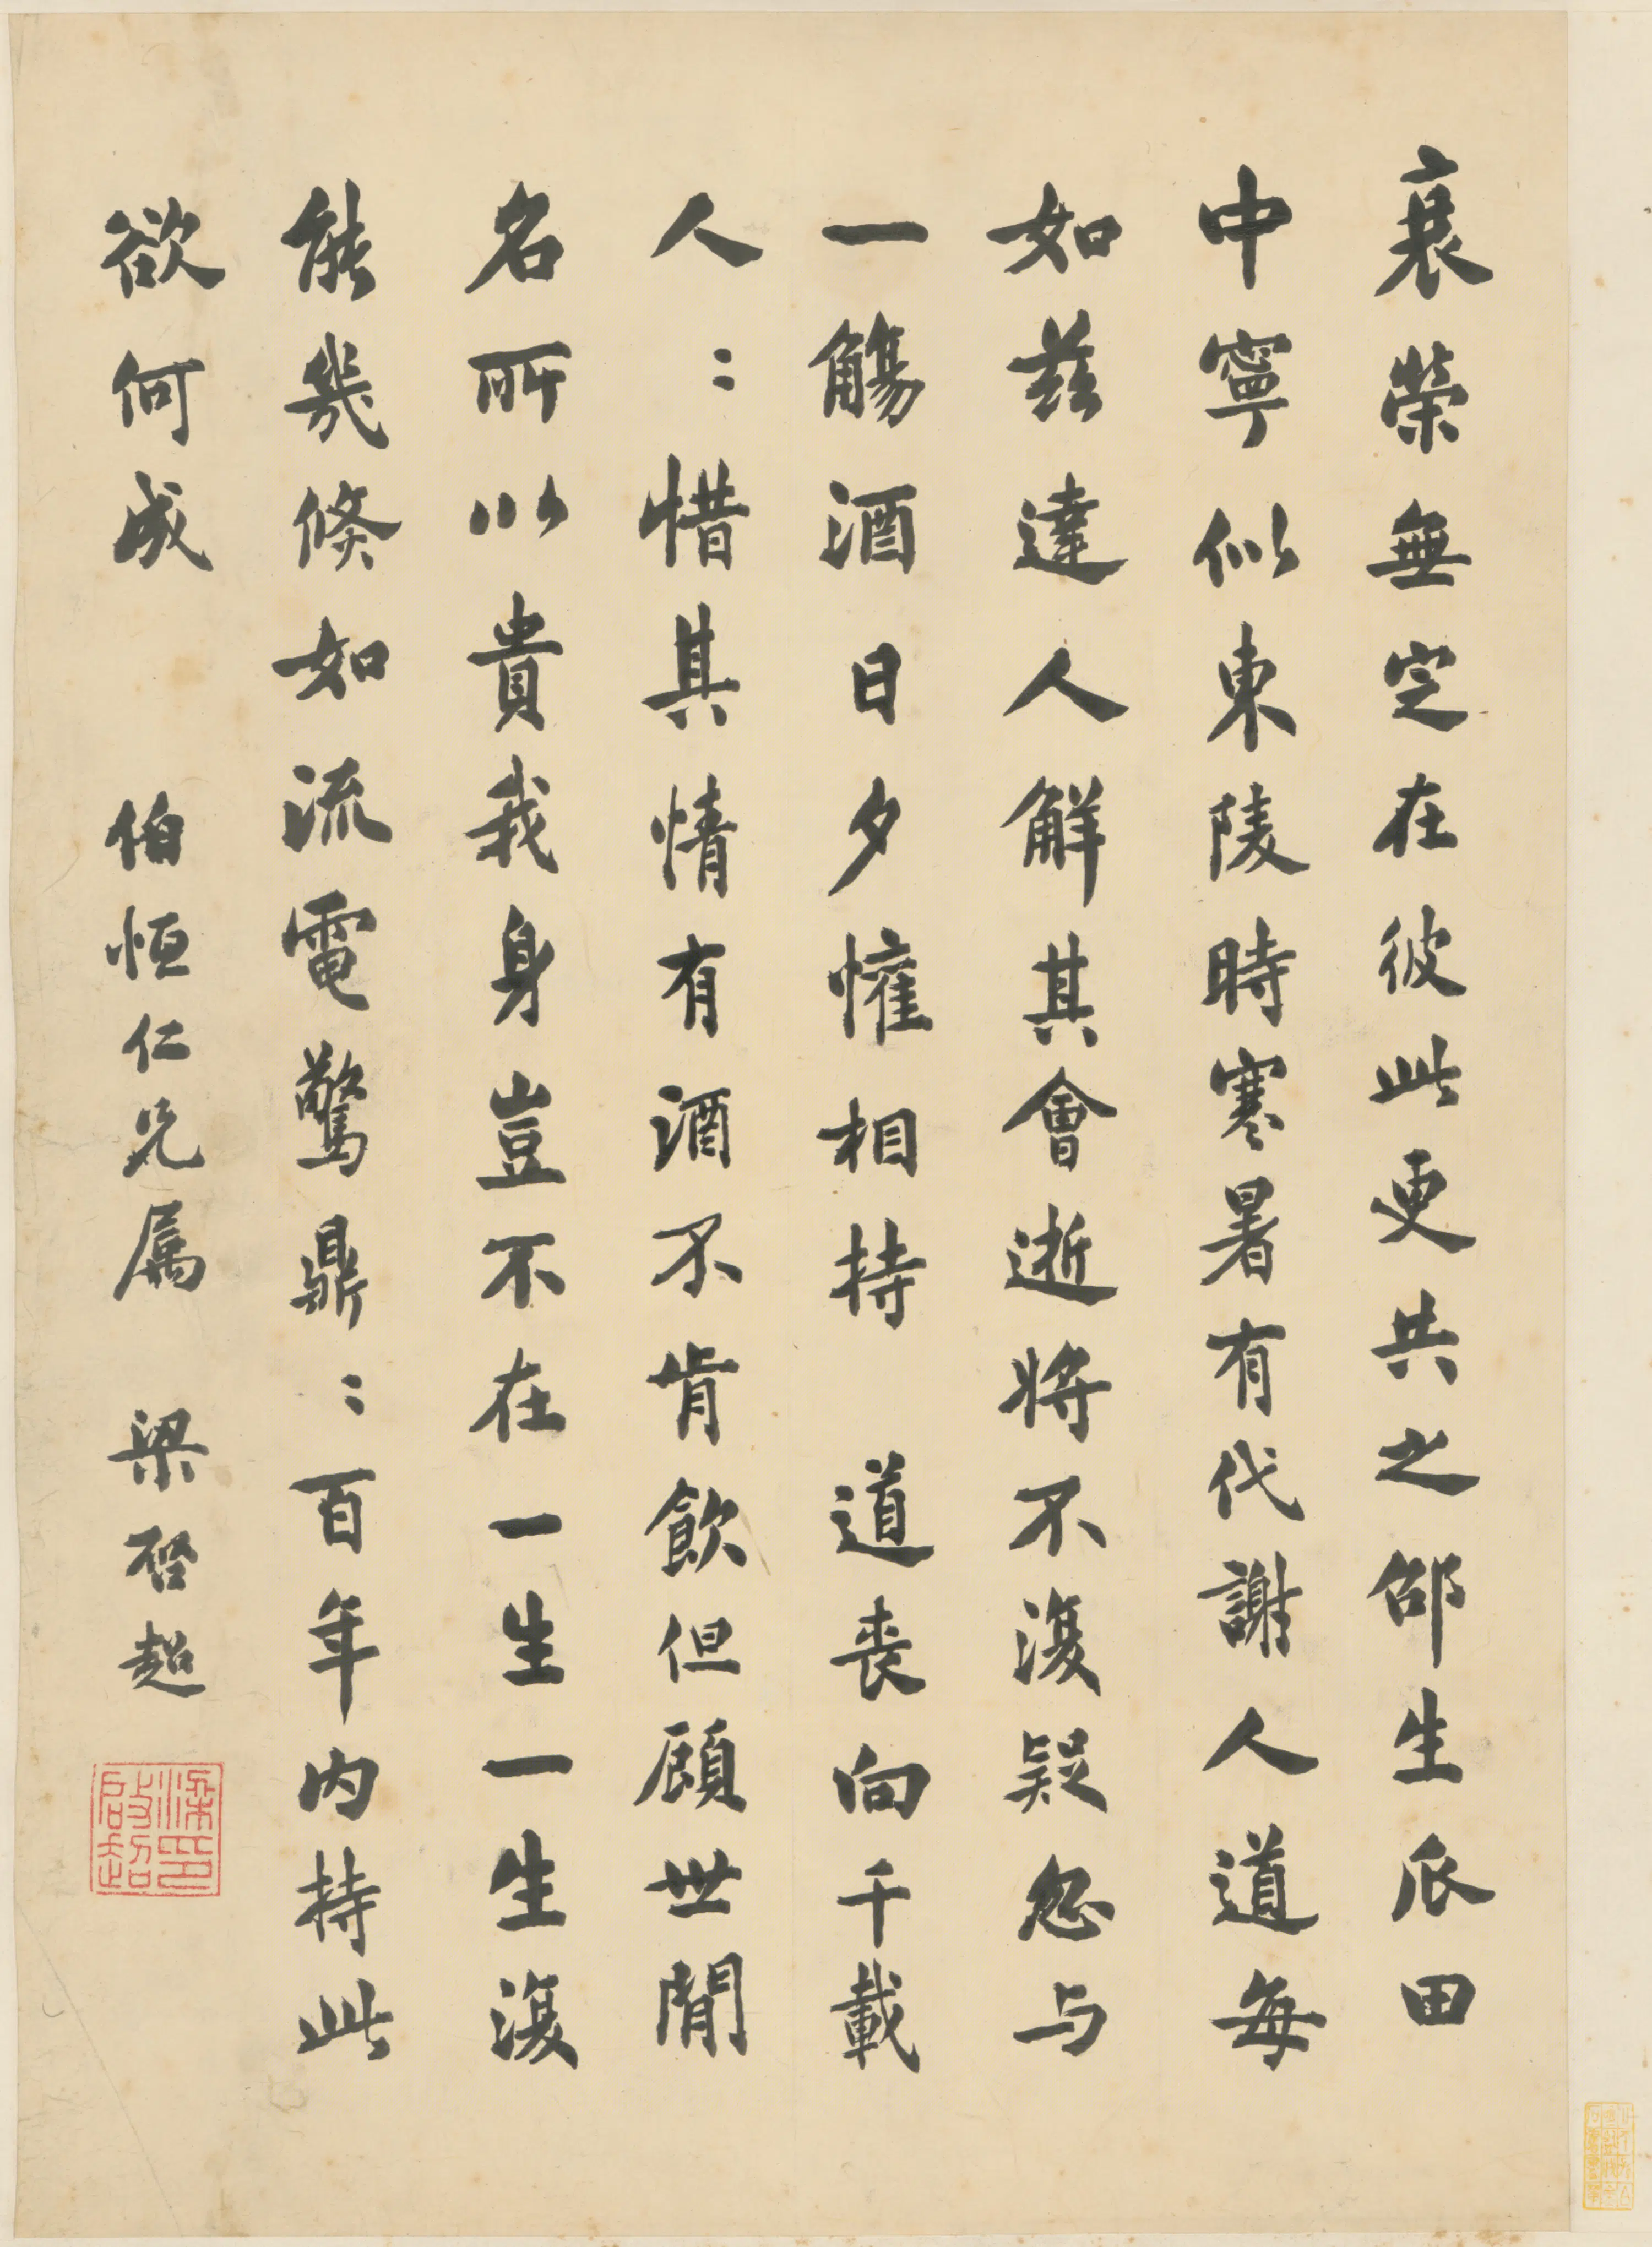 衰榮無定在彼此更共之邵生瓜田
中寧似東陵時寒暑有代謝人道每
如茲達人解其會逝將不復疑忽与
一觴酒日夕懽相持 道喪向千載
人〻惜其情有酒不肯飲但顧世間
名所以貴我身豈不在一生一生復
能幾倏如流電驚鼎〻百年內持此
欲何成 伯恒仁兄属 梁啓超
梁印啟超